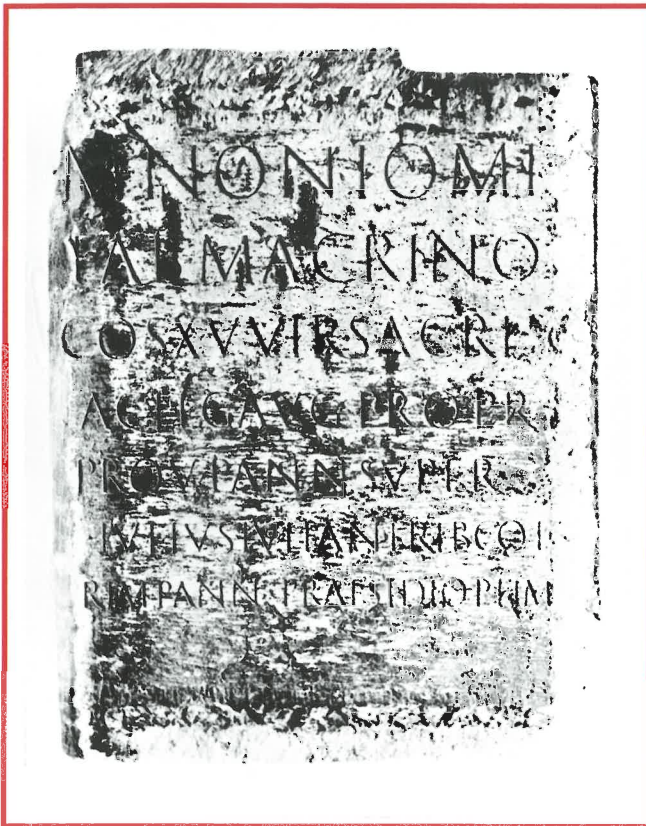 M NONIO M
FAB MACRINO
COS XVVIR SACR
AC LEG AVG PRO PR
PROV PANN SVPER
IVLIVS IVLIAN TRIB CO
RIM PANN PRAESIDIO